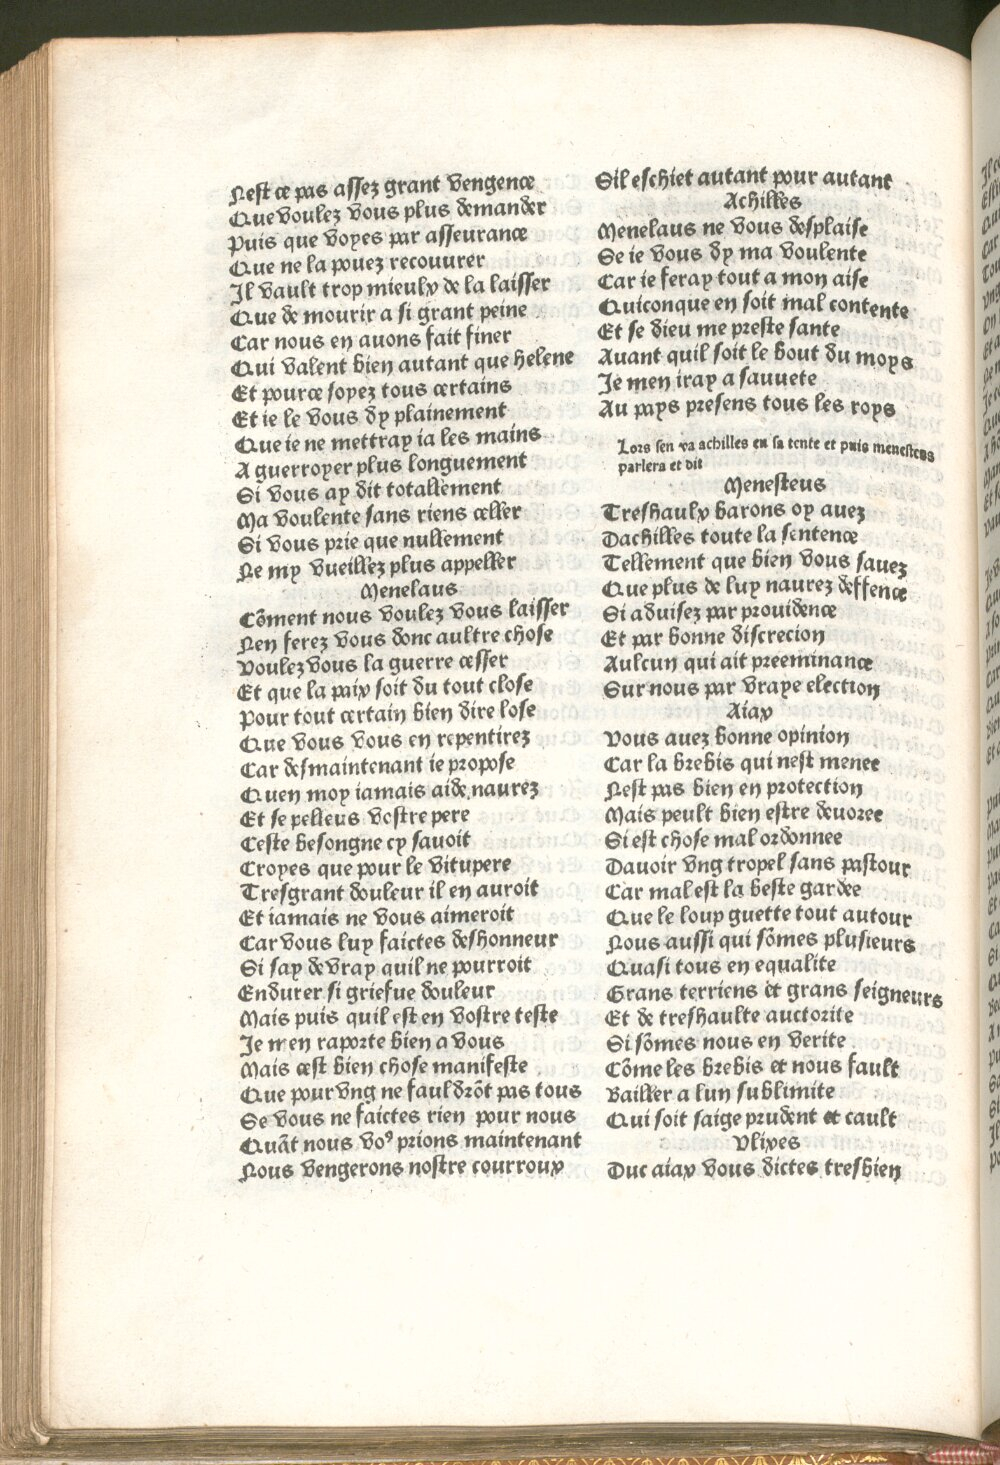 Nest ce pas assez grant vengence
Que voulez vous plus demander
Puis que voyes par asseurance
Que ne la pouez recouurer
Il vault trop mieulx de la laisser
Que de mourir a si grant peine
Car nous en auons fait finer
Qui valent bien autant que helene
Et pource soyez tous certains
Et ie le vous dy plainement
Que ie ne mettray ia les mains
A guerroyer plus longuement
Si vous ay dit totallement
Ma voulente sans riens celler
Si vous prie que nullement
Ne my vueillez plus appeller
Menelaus
Cõment nous voulez vous laisser
Nen ferez vous donc aultre chose
Voulez vous la guerre cesser
Et que la paix soit du tout close
Pour tout certain bien dire lose
Que vous vous en repentirez
Car desmaintenant ie propose
Quen moy iamais aide naurez
Et se pelleus vostre pere
Ceste besongne cy sauoit
Croyes que pour le vitupere
Tresgrant douleur il en auroit
Et iamais ne vous aimeroit
Car vous luy faictes deshonneur
Si say de vray quil ne pourroit
Endurer si griefue douleur
Mais puis quil est en vostre teste
Je men raporte bien a vous
Mais cest bien chose manifeste
Que pour vng ne fauldrõt pas tous
Se vous ne faictes rien pour nous
Quãt nous voꝰ prions maintenant
Nous vengerons nostre courroux
Sil eschiet autant pour autant
Achilles
Menelaus ne vous desplaise
Se ie vous dy ma voulente
Car ie feray tout a mon aise
Quiconque en soit mal contente
Et se dieu me preste sante
Auant quil soit le bout du moys
Je men iray a sauuete
Au pays presens tous les roys
Lors sen va achilles en sa tente et puis menesteus
parlera et dit
Menesteus
Treshaulx barons oy auez
Dachilles toute la sentence
Tellement que bien vous sauez
Que plus de luy naurez deffence
Si aduisez par prouidence
Et par bonne discrecion
Aulcun qui ait preeminance
Sur nous par vraye election
Aiax
Vous auez bonne opinion
Car la brebis qui nest menee
Nest pas bien en protection
Mais peult bien estre deuoree
Si est chose mal ordonnee
Dauoir vng tropel sans pastour
Car mal est la beste gardee
Que le loup guette tout autour
Nous aussi qui sõmes plusieurs
Quasi tous en equalite
Grans terriens et grans seigneurs
Et de treshaulte auctorite
Si sõmes nous en verite
Cõme les brebis et nous fault
Bailler a lun sublimite
Qui soit saige prudent et cault
Vlixes
Duc aiax vous dictes tresbien